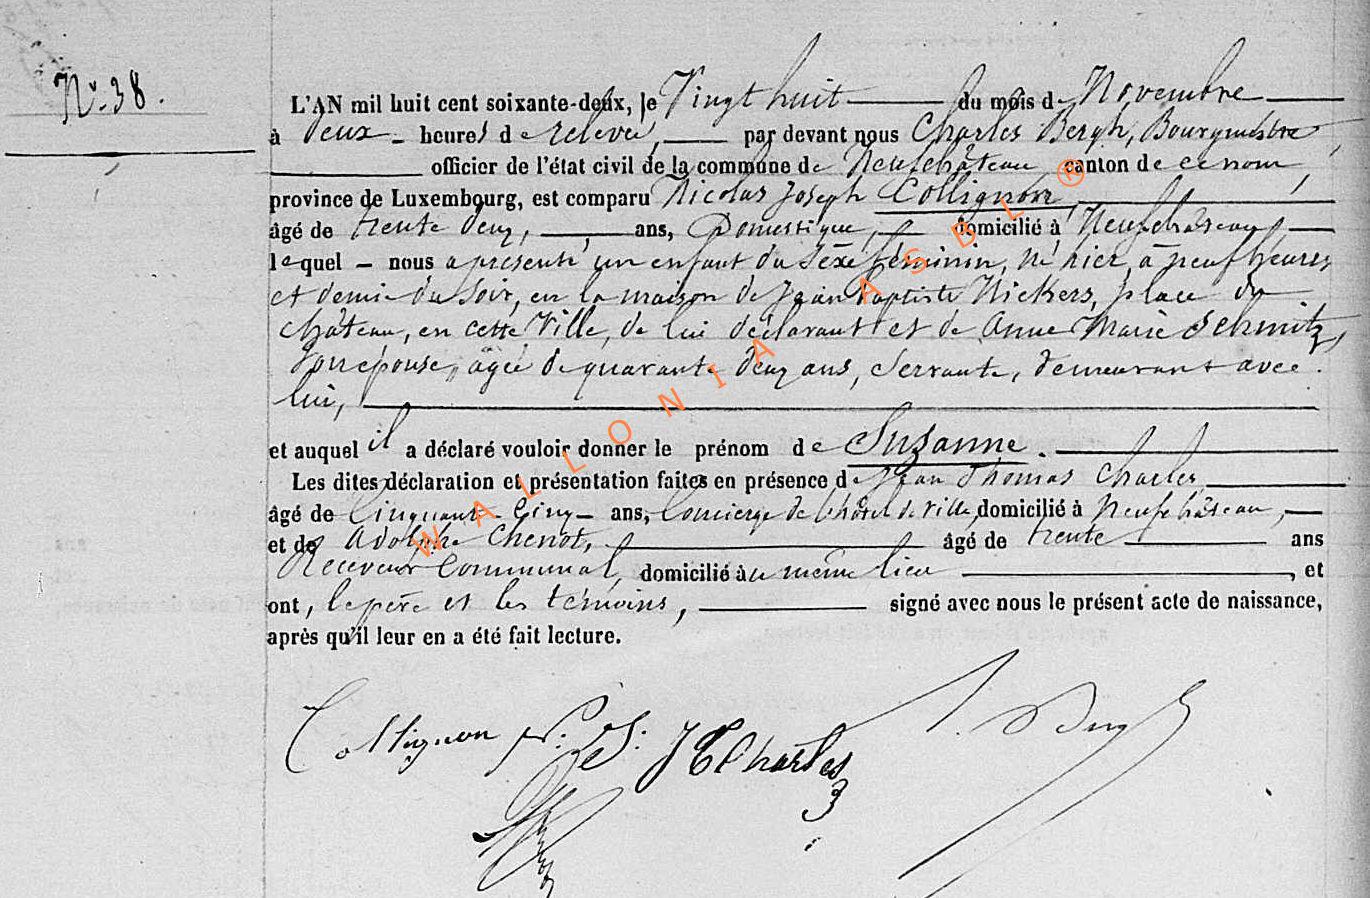 N°. 38.
L'AN mil huit cent soixante-deux, le Vingt huit du mois de Novembre
à deux heures de relevée, par devant nous Charles Bergh, Bourgmestre
officier de l'état civil de la commune de Neufchâteau canton de ce nom,
province de Luxembourg, est comparu Nicolas Joseph Collignon,
âgé de trente deux, ans, Domestique, domicilié à Neufchâteau,
lequel nous a présenté un enfant du sexe féminin, né hier, à neuf heures
et demie du soir, en la maison de Jean Baptiste Nickers, place du
château, en cette Ville, de lui déclarant et de Anne Marie Schmitz,
son épouse, âgée de quarante deux ans, Servante, demeurant avec
lui,
et auquel il a déclaré vouloir donner le prénom de Suzanne.
Les dites déclaration et présentation faites en présence de Jean Thomas Charles,
âgé de Cinquante Cinq ans, Concierge de l'hôtel de ville, domicilié à Neufchâteau,
et de Adolphe Chenot, âgé de trente ans
Receveur Communal, domicilié au même lieu, et
ont, le père et les témoins, signé avec nous le présent acte de naissance,
après qu'il leur en a été fait lecture.
Collignon N. J. JT Charles
WALLONIA ASBL ®